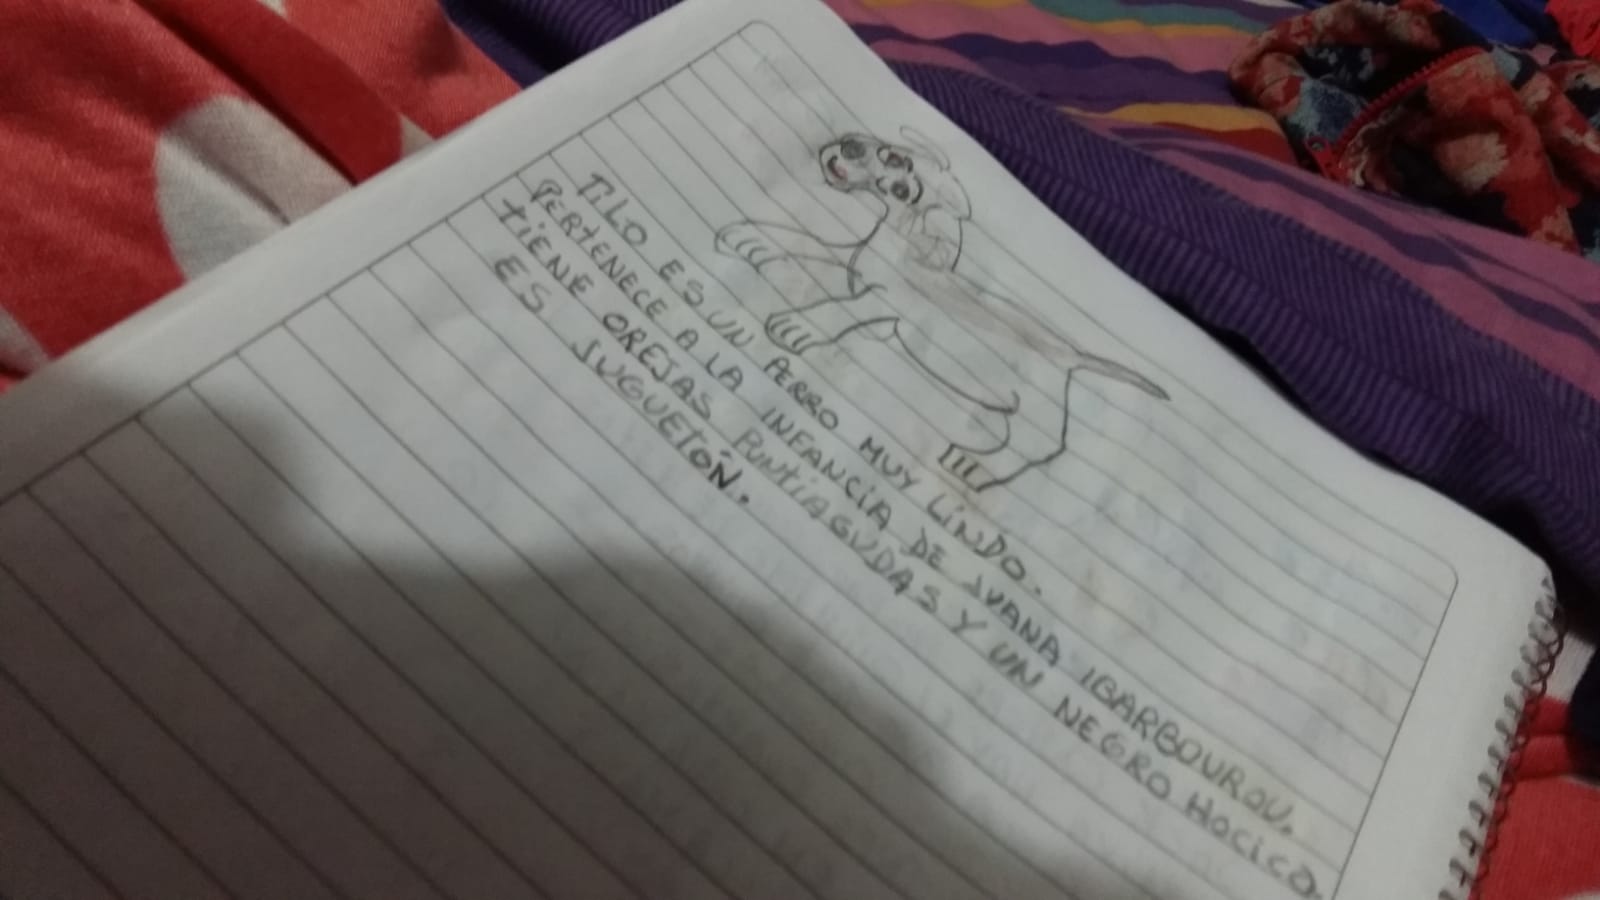 TILO ES UN PERRO MUY LINDO.
PERTENECE A LA INFANCIA DE JUANA IBARBOUROU.
TIENE OREJAS PUNTIAGUDAS Y UN NEGRO HOCICO.
ES JUGUETÓN.